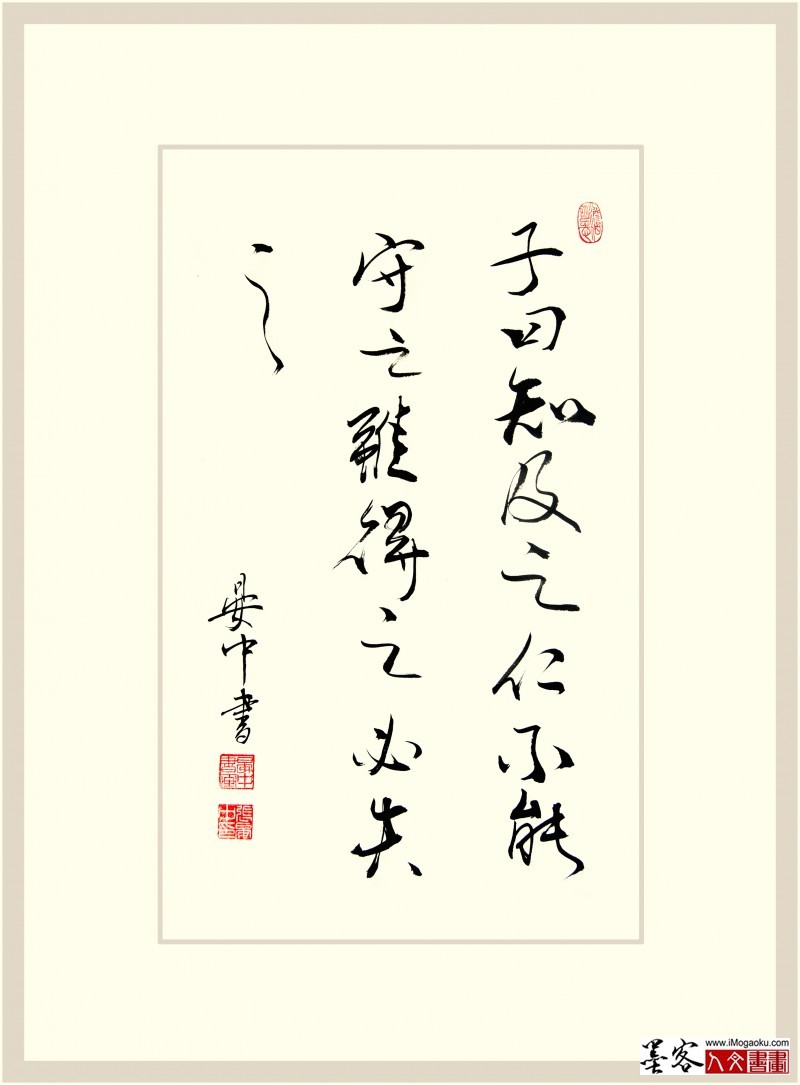 子曰知及之仁不能
守之雖得之必失
之
晏中書
墨客
www.iMogaoku.com
人文書畫